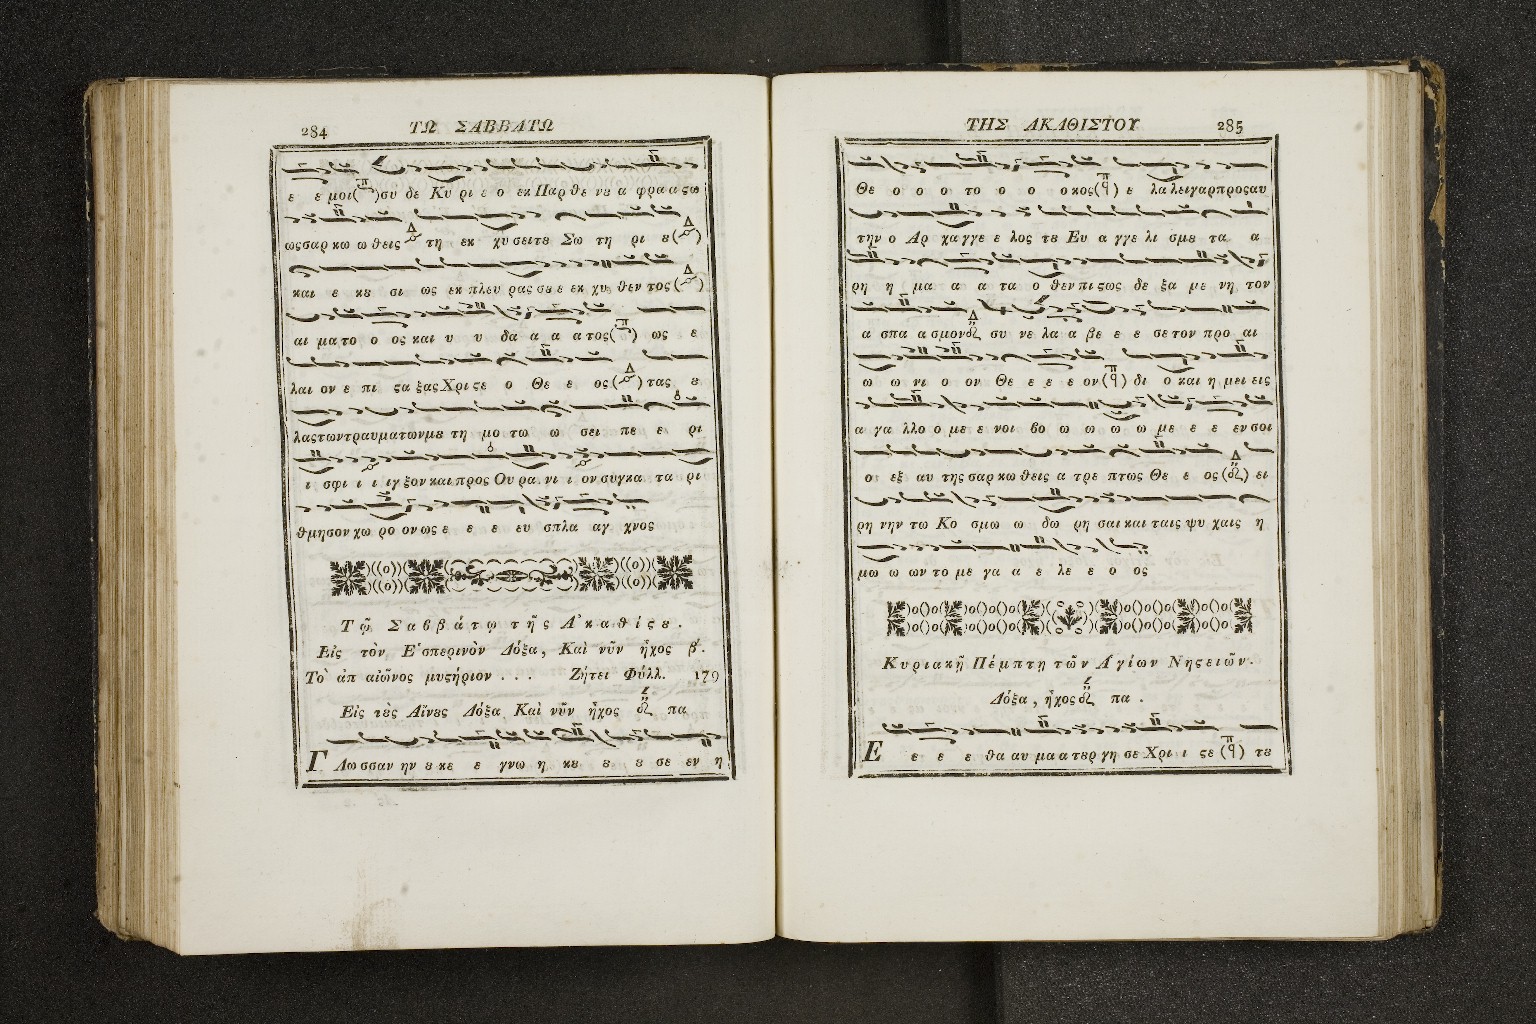 284 ΤΩ ΣΑΒΒΑΤΩ
ε ε μοι συ δε Κυ ρι ε ο εκ Παρ θε νȣ α φρα α ϛω
ως σαρ κω ω θεις τη εκ χυ σει τȣ Σω τη ρι ȣ
και ε κȣ σι ως εκ πλευ ρας σȣ ε εκ χυ θεν τος
αι μα το ο ος και υ υ δα α α α τος ως ε
λαι ον ε πι ϛα ξας Χρι ϛε ο Θε ε ος τας ȣ
λας των τραυ μα των μȣ τη μο τω ω σει πε ε ρι
ι σφι ι ι ιγ ξον και προς Ου ρα νι ι ον συγ κα τα ρι
θμη σον χω ρο ον ως ε ε ε ευ σπλα αγ χνος
Τῷ Σαββάτῳ τῆς Α᾿καθίϛȣ.
Εἰς τὸν Ε῾σπερινὸν Δόξα, Καὶ νῦν ἦχος β΄.
Τὸ ἀπ αἰῶνος μυϛήριον . . . Ζήτει Φύλλ. 179
Εἰς τὲς Αἴνȣς Δόξα Καὶ νῦν ἦχος πα
Γ λω σσαν ην ȣ κε ε γνω η κȣ ȣ ȣ σε εν η
ΤΗΣ ΑΚΑΘΙΣΤΟΥ 285
Θε ο ο ο το ο ο ο κος ε λα λει γαρ προς αυ
την ο Αρ χα γγε ε λος τȣ Ευ α γγε λι σμȣ τα α
ρη η μα α α τα ο θεν πι ϛως δε ξα με νη τον
α σπα α σμον συ νε λα α βε ε ε σε τον προ αι
ω ω νι ο ον Θε ε ε ε ον δι ο και η μει εις
α γα λλο ο με ε νοι βο ω ω ω ω με ε ε εν σοι
ο εξ αυ της σαρ κω θεις α τρε πτως Θε ε ος ει
ρη νην τω Κο σμω ω δω ρη σαι και ταις ψυ χαις η
μω ω ων το με γα α ε λε ε ο ος
Κυριακῇ Πέμπτῃ τῶν Α῾γίων Νηϛειῶν.
Δόξα, ἦχος πα .
Ε ε ε ε θα αυ μα α τȣρ γη σε Χρι ι ϛε τȣ